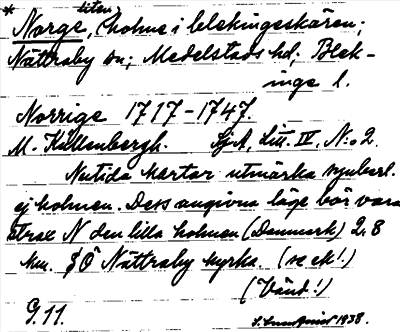 * Norge, liten holme i blekingeskären;
Nättraby sn; Medelstads hd; Blek-
inge l.
Norrige 1717-1747.
M. Kullenbergh. SjA, Litt. IV, N:o 2.
Nutida kartor utmärka synberl.
ej holmen. Dess angivna läge bör vara
strax N den lilla holmen (Danmark) 2,8
km. SÖ Nättraby kyrka. (se ek!)
(Vänd!)
9.11. 1938.